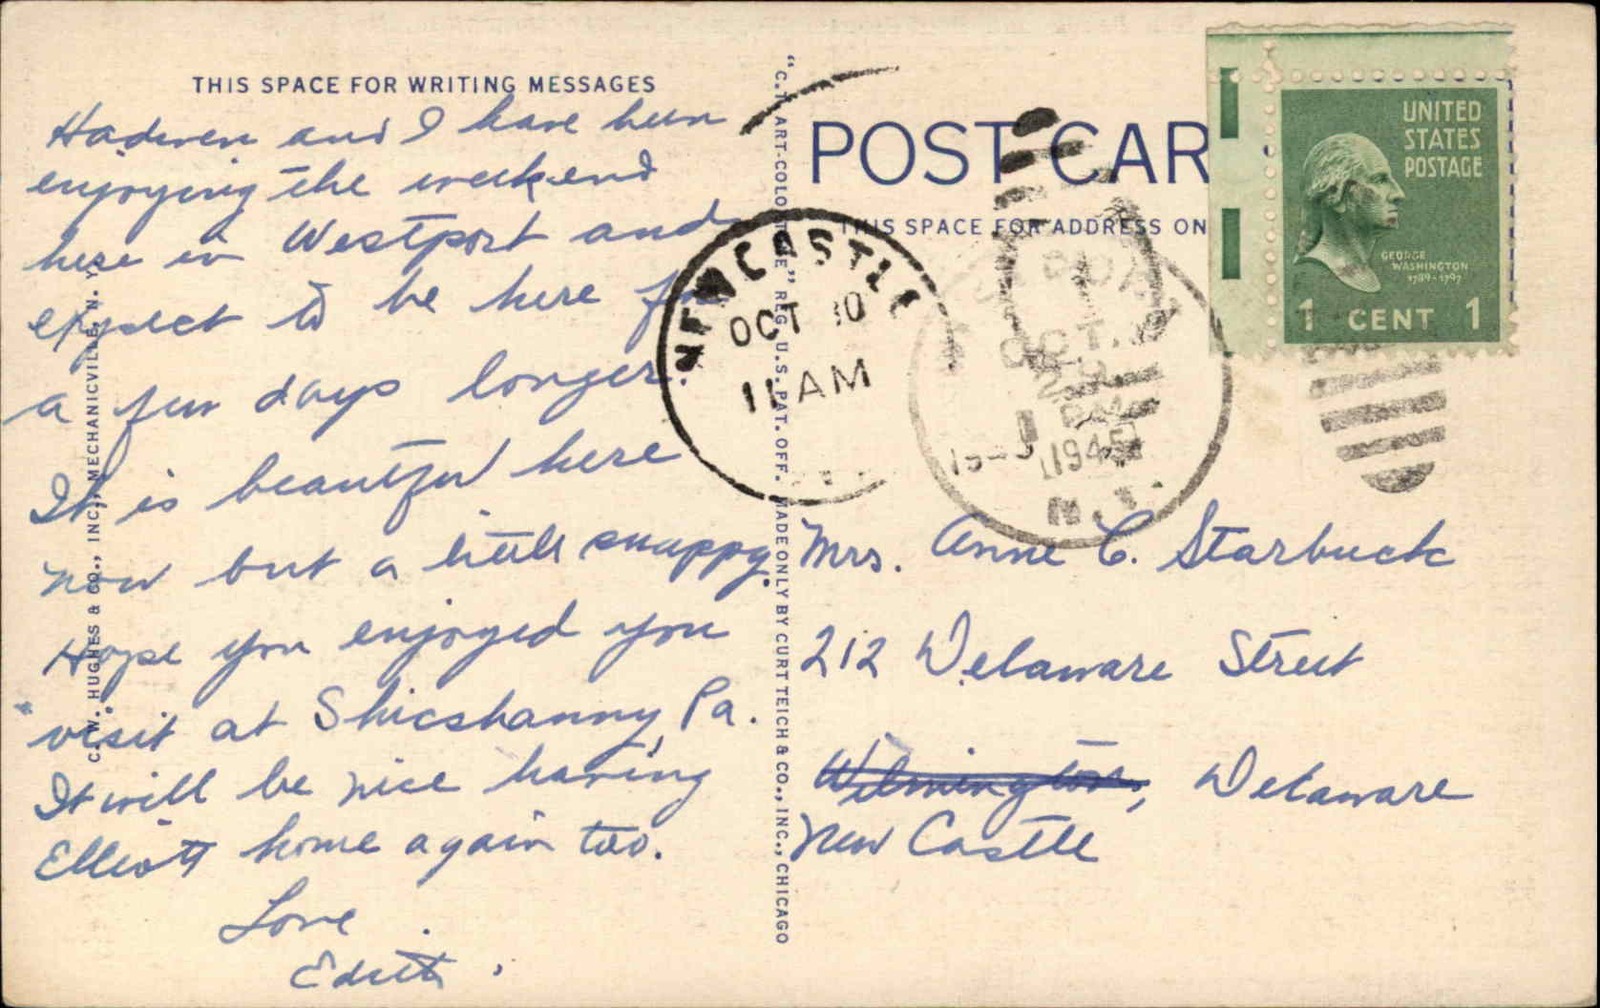 THIS SPACE FOR WRITING MESSAGES
Hadwen and I have been
enjoying the weekend
here in Westport and
expect to be here for
a few days longer.
It is beautiful here
now but a little snappy.
Hope you enjoyed you
visit at Shicshanny, Pa.
It will be nice having
Elliott home again too.
Love
Edith.
C. W. HUGHES & CO., INC., MECHANICVILLE, N. Y.
"C.T. ART-COLORTONE" REG. U.S. PAT. OFF. MADE ONLY BY CURT TEICH & CO., INC., CHICAGO
POST CAR
THIS SPACE FOR ADDRESS ON
NEW CASTLE
OCT 10
11 AM
OCT.
1945
N.Y.
UNITED
STATES
POSTAGE
GEORGE
WASHINGTON
1789-1797
1 CENT 1
Mrs. Anne C. Starbuck
212 Delaware Street
Wilmington, Delaware
New Castle